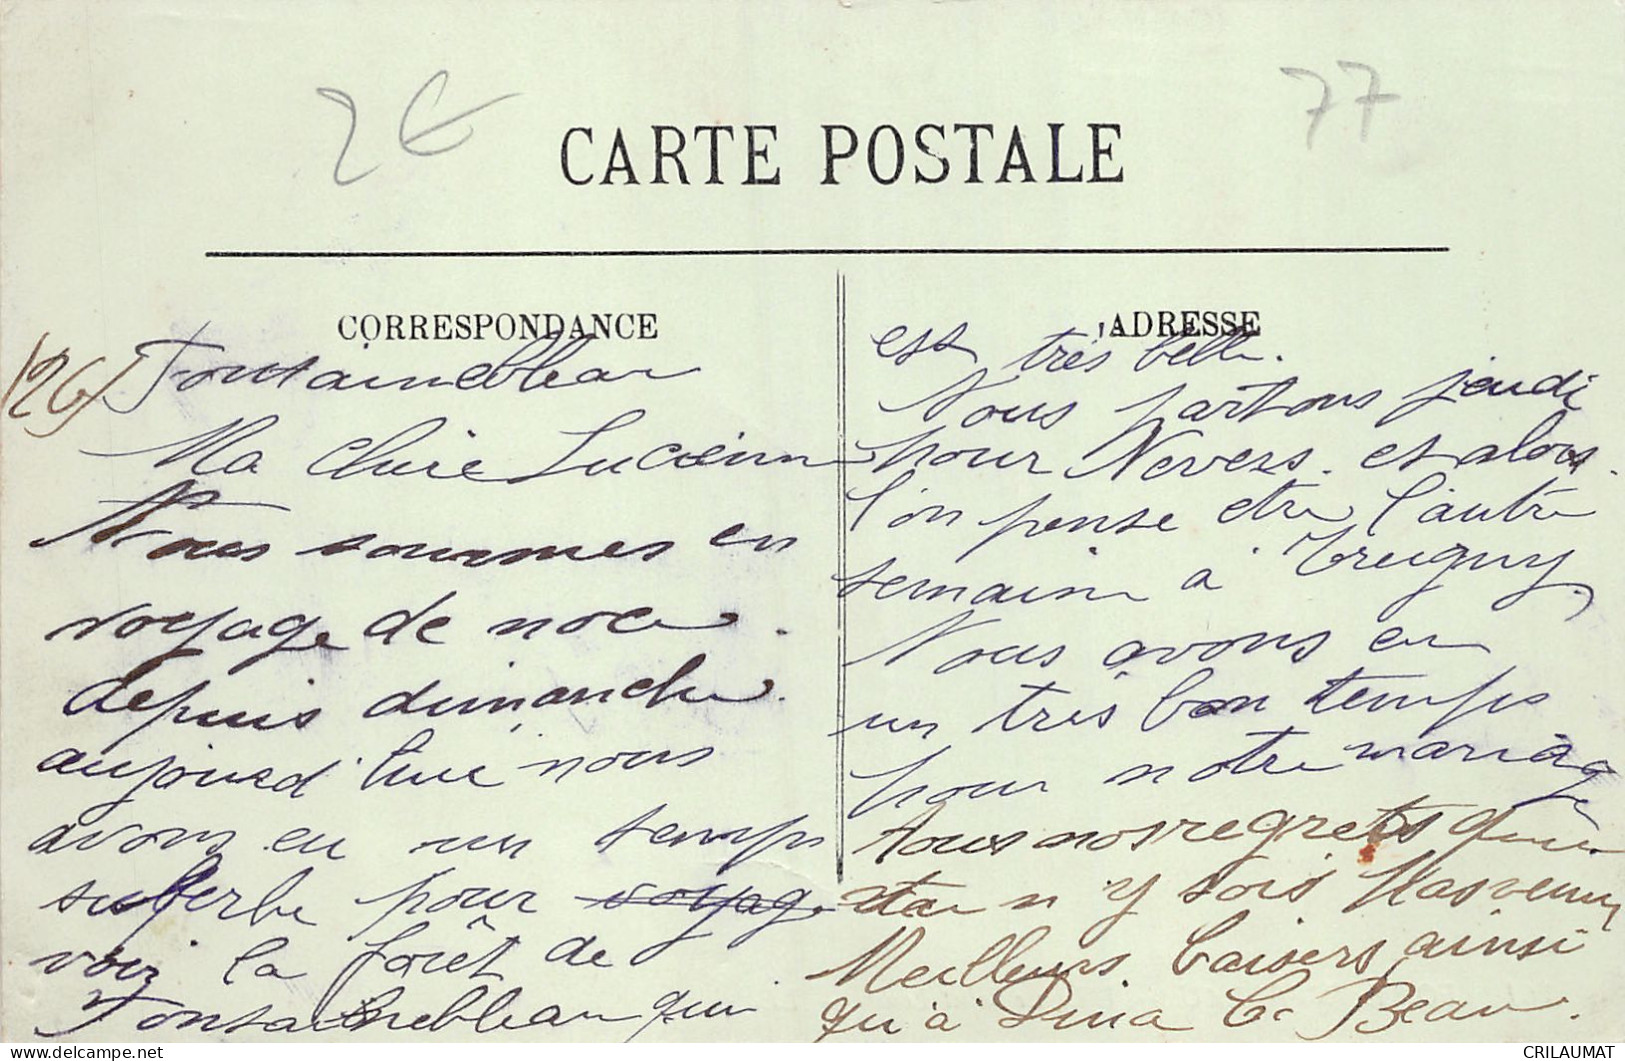 2€
77
CARTE POSTALE
CORRESPONDANCE
ADRESSE
126) Fontainebleau
Ma chère Lucienn
Nous sommes en
voyage de noce.
depuis dimanche.
aujourd'hui nous
avons eu un temps
superbe pour voyage
voir la forêt de
Fontainebleau qui
est très belle.
Nous partons jeudi
pour Nevers. et alors
l'on pense être l'autre
semaine à Treigny.
Nous avons eu
un très bon temps
pour notre mariage
tous nos regrets que
n'y sois pas venu
Meilleurs baisers ainsi
qu'à Dina le Beau.
CRILAUMAT